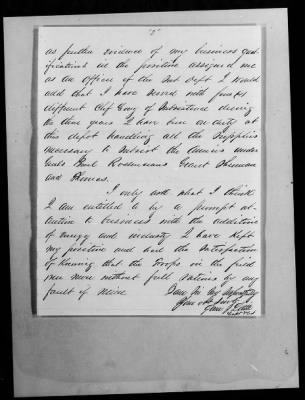 "5"
as further evidence of my business qual-
ifications in the position assigned me
as an Officer of the Sub Dept I would
add that I have served with
different Chf Comy of Subsistence during
the three years I have been on duty at
this depot handling all the Supplies
necessary to subsist the Armies under
Genls Rosencrans Grant Sherman
and Thomas.
I only ask what I think
I am entitled to by a prompt at-
tention to business with the addition
of energy and industry I have kept
my position and had the Satisfaction
of Knowing that the Troops in the field
were without full rations by any
fault of Mine
I am Sir Very Respectfully
Your obt Servt